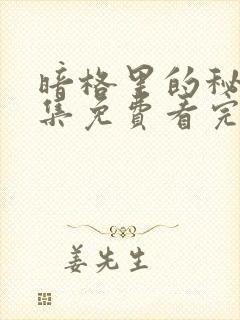 暗格里的秘
集免费看完
姜先生